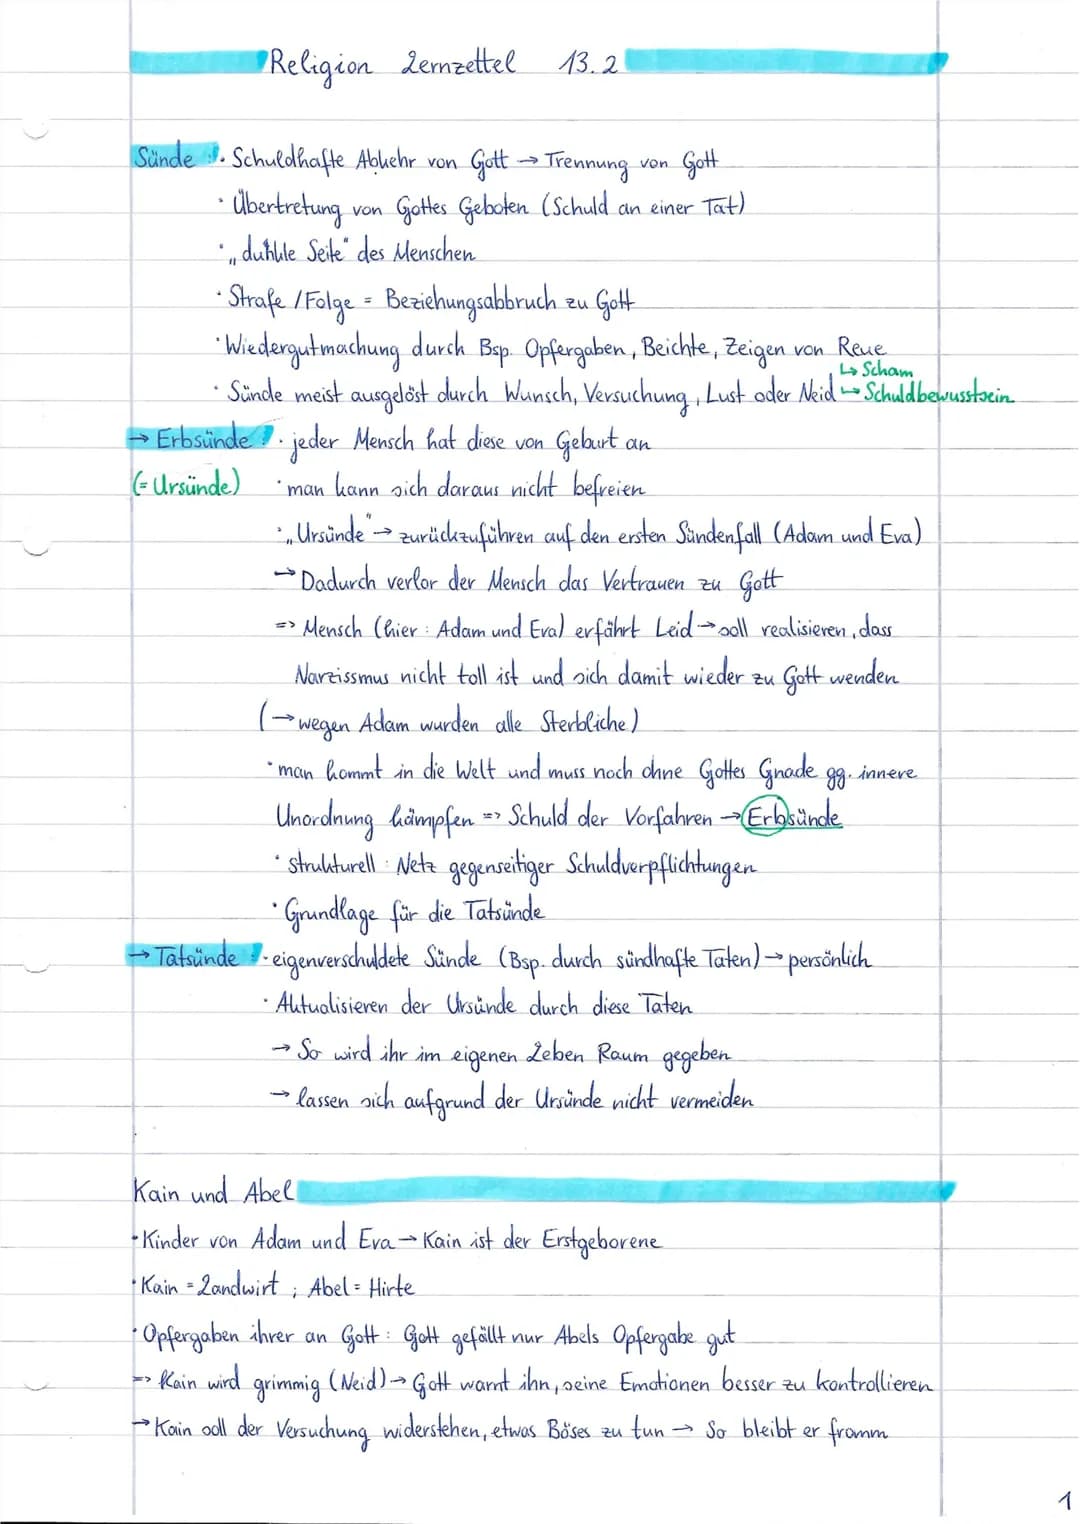 Religion Lernzettel 13.2
Sünde : · Schuldhafte Abkehr von Gott → Trennung von Gott
· Übertretung von Gottes Geboten (Schuld an einer Tat)
· „dunkle Seite" des Menschen
· Strafe / Folge = Beziehungsabbruch zu Gott
· Wiedergutmachung durch Bsp. Opfergaben, Beichte, Zeigen von Reue
↳ Scham
· Sünde meist ausgelöst durch Wunsch, Versuchung, Lust oder Neid ↳ Schuldbewusstsein
→ Erbsünde : · jeder Mensch hat diese von Geburt an
(= Ursünde) · man kann sich daraus nicht befreien
· „Ursünde" → zurückzuführen auf den ersten Sündenfall (Adam und Eva)
→ Dadurch verlor der Mensch das Vertrauen zu Gott
=> Mensch (hier : Adam und Eva) erfährt Leid → soll realisieren, dass
Narzissmus nicht toll ist und sich damit wieder zu Gott wenden
(→ wegen Adam wurden alle Sterbliche)
· man kommt in die Welt und muss noch ohne Gottes Gnade gg. innere
Unordnung kämpfen => Schuld der Vorfahren → Erbsünde
· strukturell : Netz gegenseitiger Schuldverpflichtungen
· Grundlage für die Tatsünde
→ Tatsünde : · eigenverschuldete Sünde (Bsp. durch sündhafte Taten) → persönlich
· Aktualisieren der Ursünde durch diese Taten
→ So wird ihr im eigenen Leben Raum gegeben
→ lassen sich aufgrund der Ursünde nicht vermeiden
Kain und Abel
· Kinder von Adam und Eva → Kain ist der Erstgeborene
· Kain = Landwirt ; Abel = Hirte
· Opfergaben ihrer an Gott : Gott gefällt nur Abels Opfergabe gut
=> Kain wird grimmig (Neid) → Gott warnt ihn, seine Emotionen besser zu kontrollieren
→ Kain soll der Versuchung widerstehen, etwas Böses zu tun → So bleibt er fromm
1